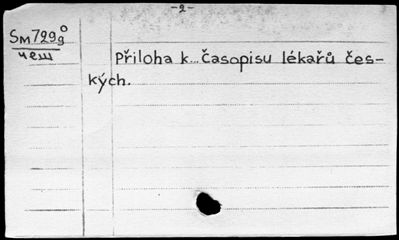 -2-
Sm729g°
чеш
Příloha k... Časopisu lékařů čes-
kých.